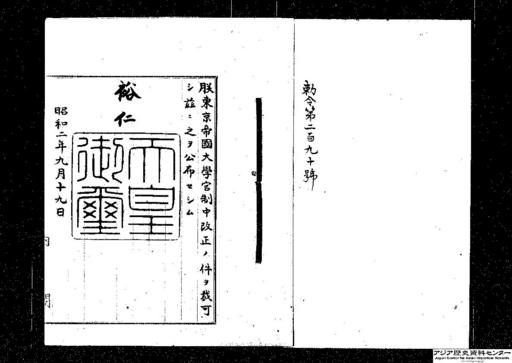 勅令第二百九十號
朕東京帝國大學官制中改正ノ件ヲ裁可
シ茲ニ之ヲ公布セシム
裕仁
天皇
御璽
昭和二年九月十九日
内
閣
アジア歴史資料センター
Japan Center for Asian Historical Records